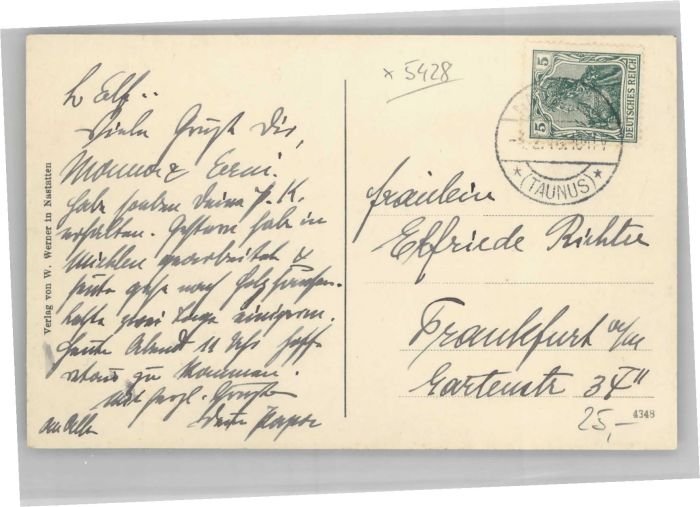 L. Elf..
Viele Grüße Dir,
Mamma & Erni.
habe soeben Deine P. K.
erhalten. Gestern habe in
Miehlen gearbeitet &
heute gehe nach Holzhausen.
zwei Tage
Heute Abend 11 Uhr hoffe
zu kommen.
Mit herzl. Grüßen
Dein Papa
an Alle
Verlag von W. Werner in Nastätten
x 5428
5
5
DEUTSCHES REICH
(TAUNUS)
Fräulein
Elfriede Richter
Frankfurt a/M
Gartenstr 37 II
4348
25,-